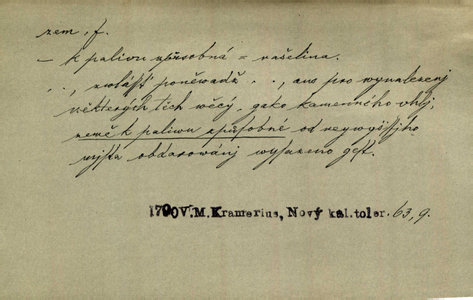 zem, f.
— k palivu způsobná = rašelina.
. . , zvlásstť poněwadž . . , ano pro wynalezenj
některých těch wěcý, gako kamenného vhlj,
země k paliwu způsobné od neywyššjho
mjsta obdarowánj wysazeno gest.
1790 V. M. Kramerius, Nový kal. toler. 63, 9.